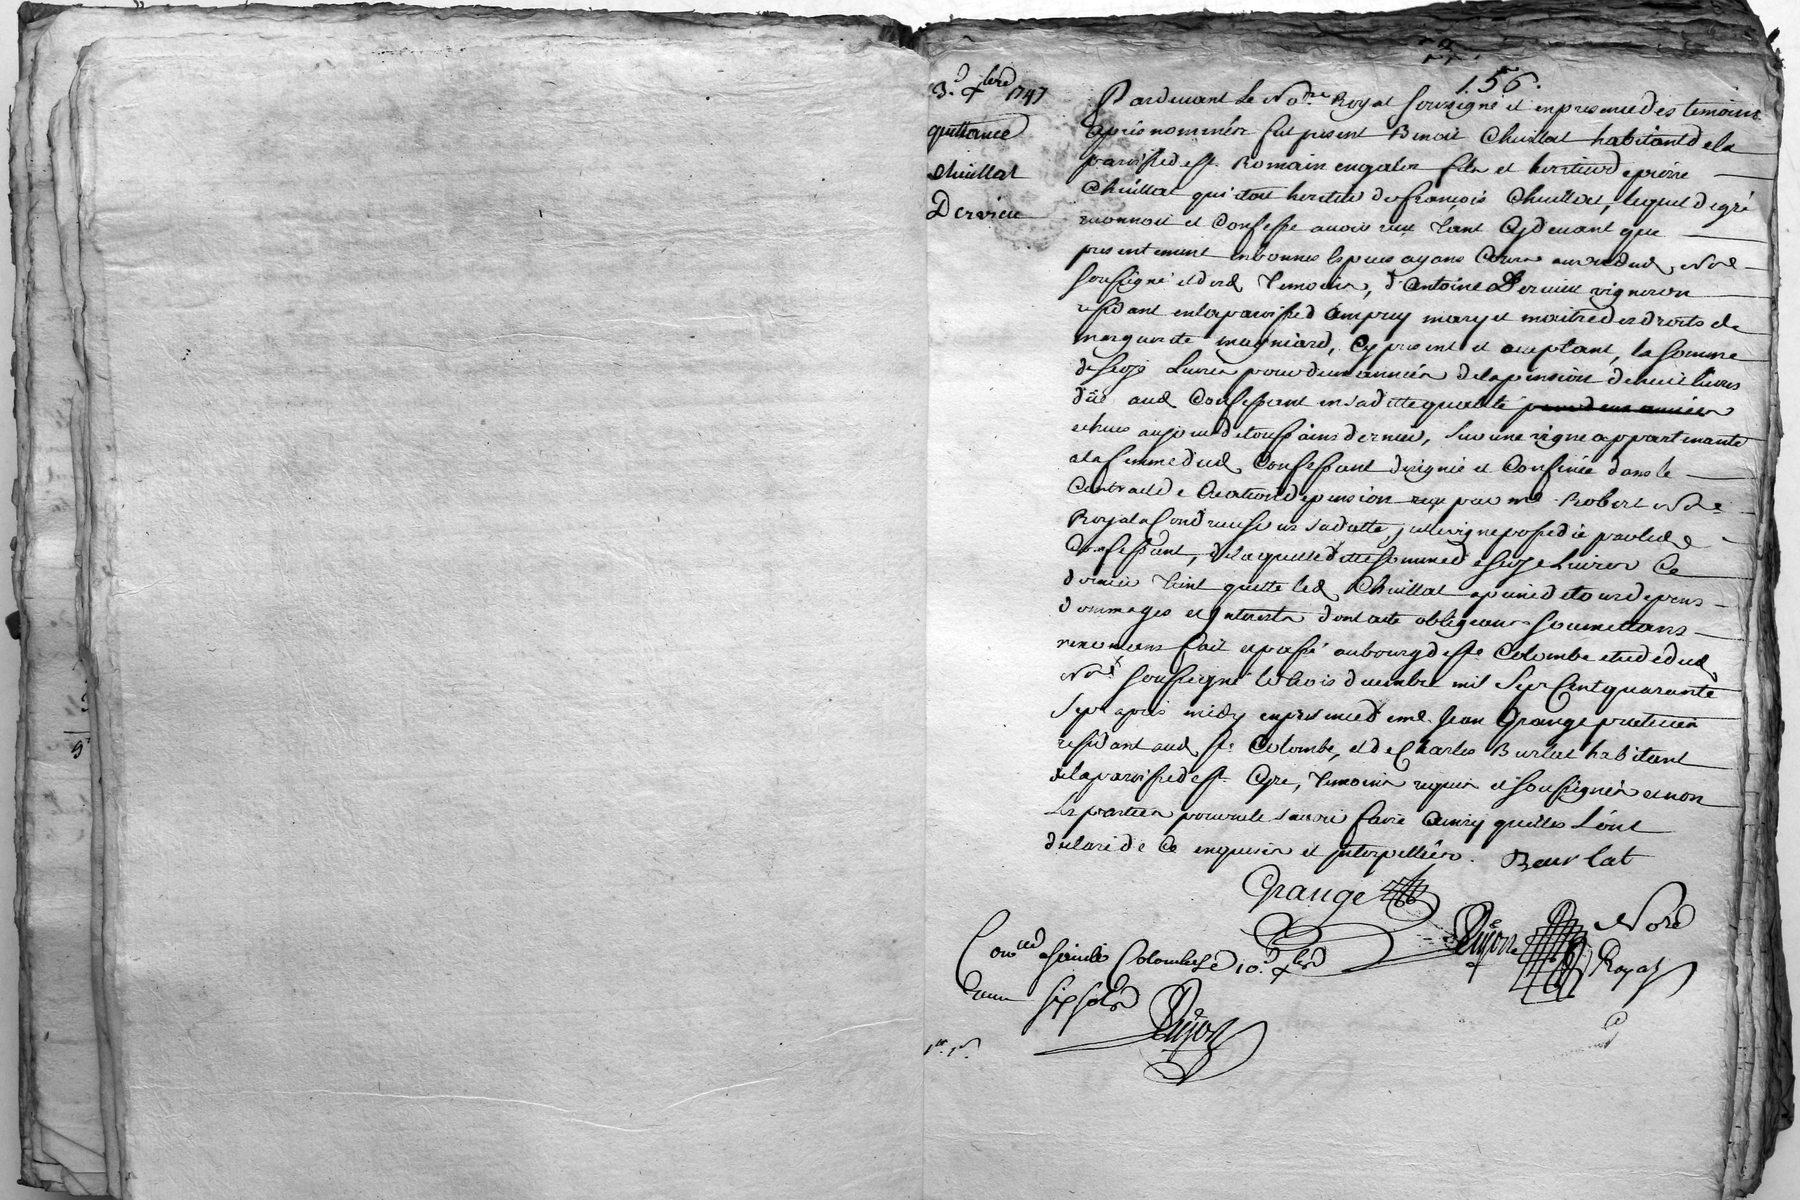 156.
3.e Xbre 1747
quittance
Chuillat
Dervieu
Pardevant Le No.re Royal soussigné et en presence des temoins
après nommés fut present Benoit Chuillat habitant de la
paroisse de st. Romain en galer fils et heritier de pierre
Chuillat qui étoit heritier de françois Chuillat, lequel de gré
reconnoit et Confesse avoir reçu tant Cy devant que
presentement en bonnes Especes ayans Cours au vû dud. No.re
soussigné et desd. temoins, d'antoine Dervieu vigneron
residant en la paroisse d'ampuy mary et maitre des droits de
marguerite magniard, Cy present et acceptant, la somme
de seize Livres pour deux années de la pension de huit livres
düe aud. Confessant en sa ditte qualité pour deux années
echues au jour de toussaints dernier, sur une vigne appartenante
a la femme dud. Confessant designée et Confinée dans le
Contract de Creation de pension reçu par me. Robert No.re
Royal a Condrieu sous sa datte, icelle vigne possedée par led.
Confessant, de laquelle ditte somme de seize Livres Ce
dernier tient quitte led. Chuillat a peine de tous depens
dommages et Interests dont acte obligeans soumettans
renonceans fait et passé au bourg de ste. Colombe etude dud.
No.re soussigné le trois decembre mil sept Cent quarante
sept après midy en presence de me. Jean Grange praticien
residant aud. ste. Colombe, et de Charles Burlat habitant
de la paroisse de st. Cyre, temoins requis et soussignés et non
les parties pour ne le savoir faire Ainsy quelles l'ont
declaré de Ce enquises et interpellées. Burlat
Grange
No.re
Royal
Con.lé a sainte Colombe Le 10.e Xbre
Reçu six sols